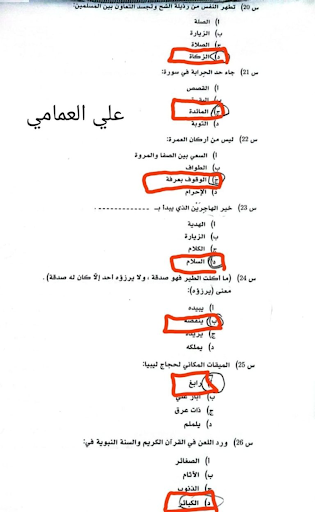 س 20) تطهر النفس من رذيلة الشح وتجسد التعاون بين المسلمين:
أ) الصلة
ب) الزيارة
ج) الصلاة
د) الزكاة
س 21) جاء حد الحرابة في سورة:
أ) القصص
ج) المائدة
د) التوبة
علي العمامي
س 22) ليس من أركان العمرة:
أ) السعي بين الصفا والمروة
ب) الطواف
ج) الوقوف بعرفة
د) الإحرام
س 23) خير الهاجرين الذي يبدأ بـ
أ) الهدية
ب) الزيارة
ج) الكلام
د) السلام
س 24) (ما أكلت الطير فهو صدقة ، ولا يرزؤه أحد إلا كان له صدقة) ،
معنى (يرزؤه):
أ) يبيده
ب) ينقصه
ج) يريده
د) يملكه
س 25) الميقات المكاني لحجاج ليبيا:
أ) رابغ
ب) آبار علي
ج) ذات عرق
د) يلملم
س 26) ورد اللعن في القرآن الكريم والسنة النبوية في:
أ) الصغائر
ب) الآثام
ج) الذنوب
د) الكبائر